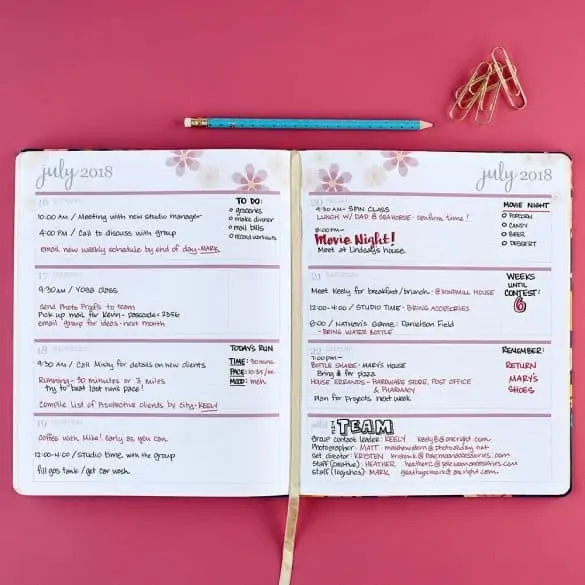 july 2018
16
TO DO:
10:00 AM / Meeting with new studio manager
groceries
make dinner
4:00 PM / Call to discuss with group
mail bills
record workouts
email new weekly schedule by end of day - MARK
17
9:30 AM / YOGA CLASS
send Photo Proofs to team
Pick up mail for Kevin - passcode = 2356
email group for ideas - next month
18
TODAY'S RUN
9:30 AM / Call Misty for details on new clients
TIME: 30 mins.
Running - 30 minutes or 3 miles
PACE:
try to beat last run's pace!
MOOD: meh.
Compile List of Prospective clients by city - KEELY
19
Coffee with Mike! Early as you can
12:00-4:00 / Studio time with the group
fill gas tank / get car wash
july 2018
20
9:30 AM - SPIN CLASS
MOVIE NIGHT
LUNCH W/ DAD @ SEAHORSE - confirm time!
POPCORN
8:00 PM -
CANDY
Movie Night!
BEER
Meet at Lindsay's House.
DESSERT
21
WEEKS
UNTIL
CONTEST:
6
Meet Keely for breakfast/brunch - @ WINDMILL HOUSE
12:00-4:00 / STUDIO TIME - BRING ACCESSORIES
8:00 / Nathan's Game: Danielson Field
- BRING WATER BOTTLE
22
REMEMBER:
7:00 PM -
BOTTLE SHARE - MARY'S HOUSE
RETURN
Bring $ for pizza
MARY'S
HOUSE ERRANDS - HARDWARE STORE, POST OFFICE
& PHARMACY
SHOES
Plan for Projects next week
THE TEAM
Group contact leader: KEELY
Photographer: MATT
Set director: KRISTEN
Staff (creative): HEATHER
Staff (logistics): MARK